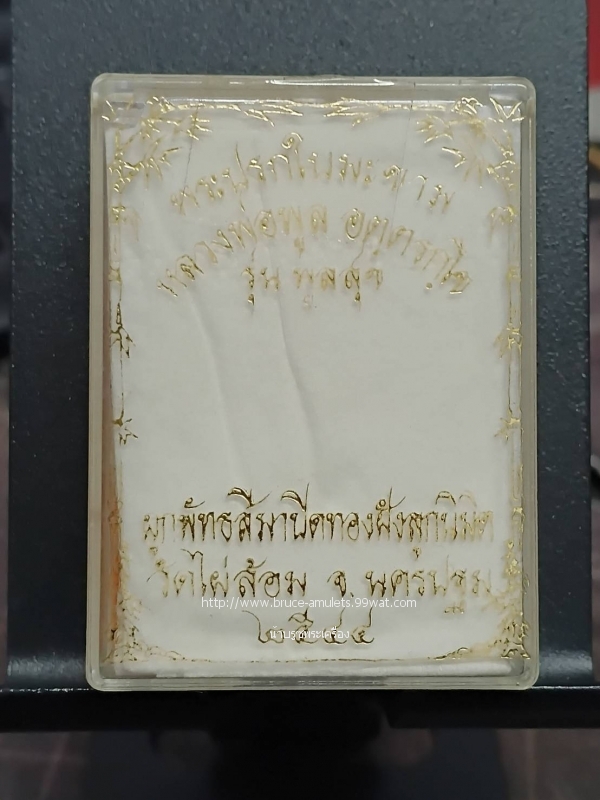 พระปรกใบมะขาม
หลวงพ่อพูล อตฺตรกฺโข
รุ่น พูลสุข
ผูกพัทธสีมาปิดทองฝังลูกนิมิต
วัดไผ่ล้อม จ.นครปฐม
http://www.bruce-amulets.99wat.com
๒๕๔๔
น้าบรูซพระเครื่อง